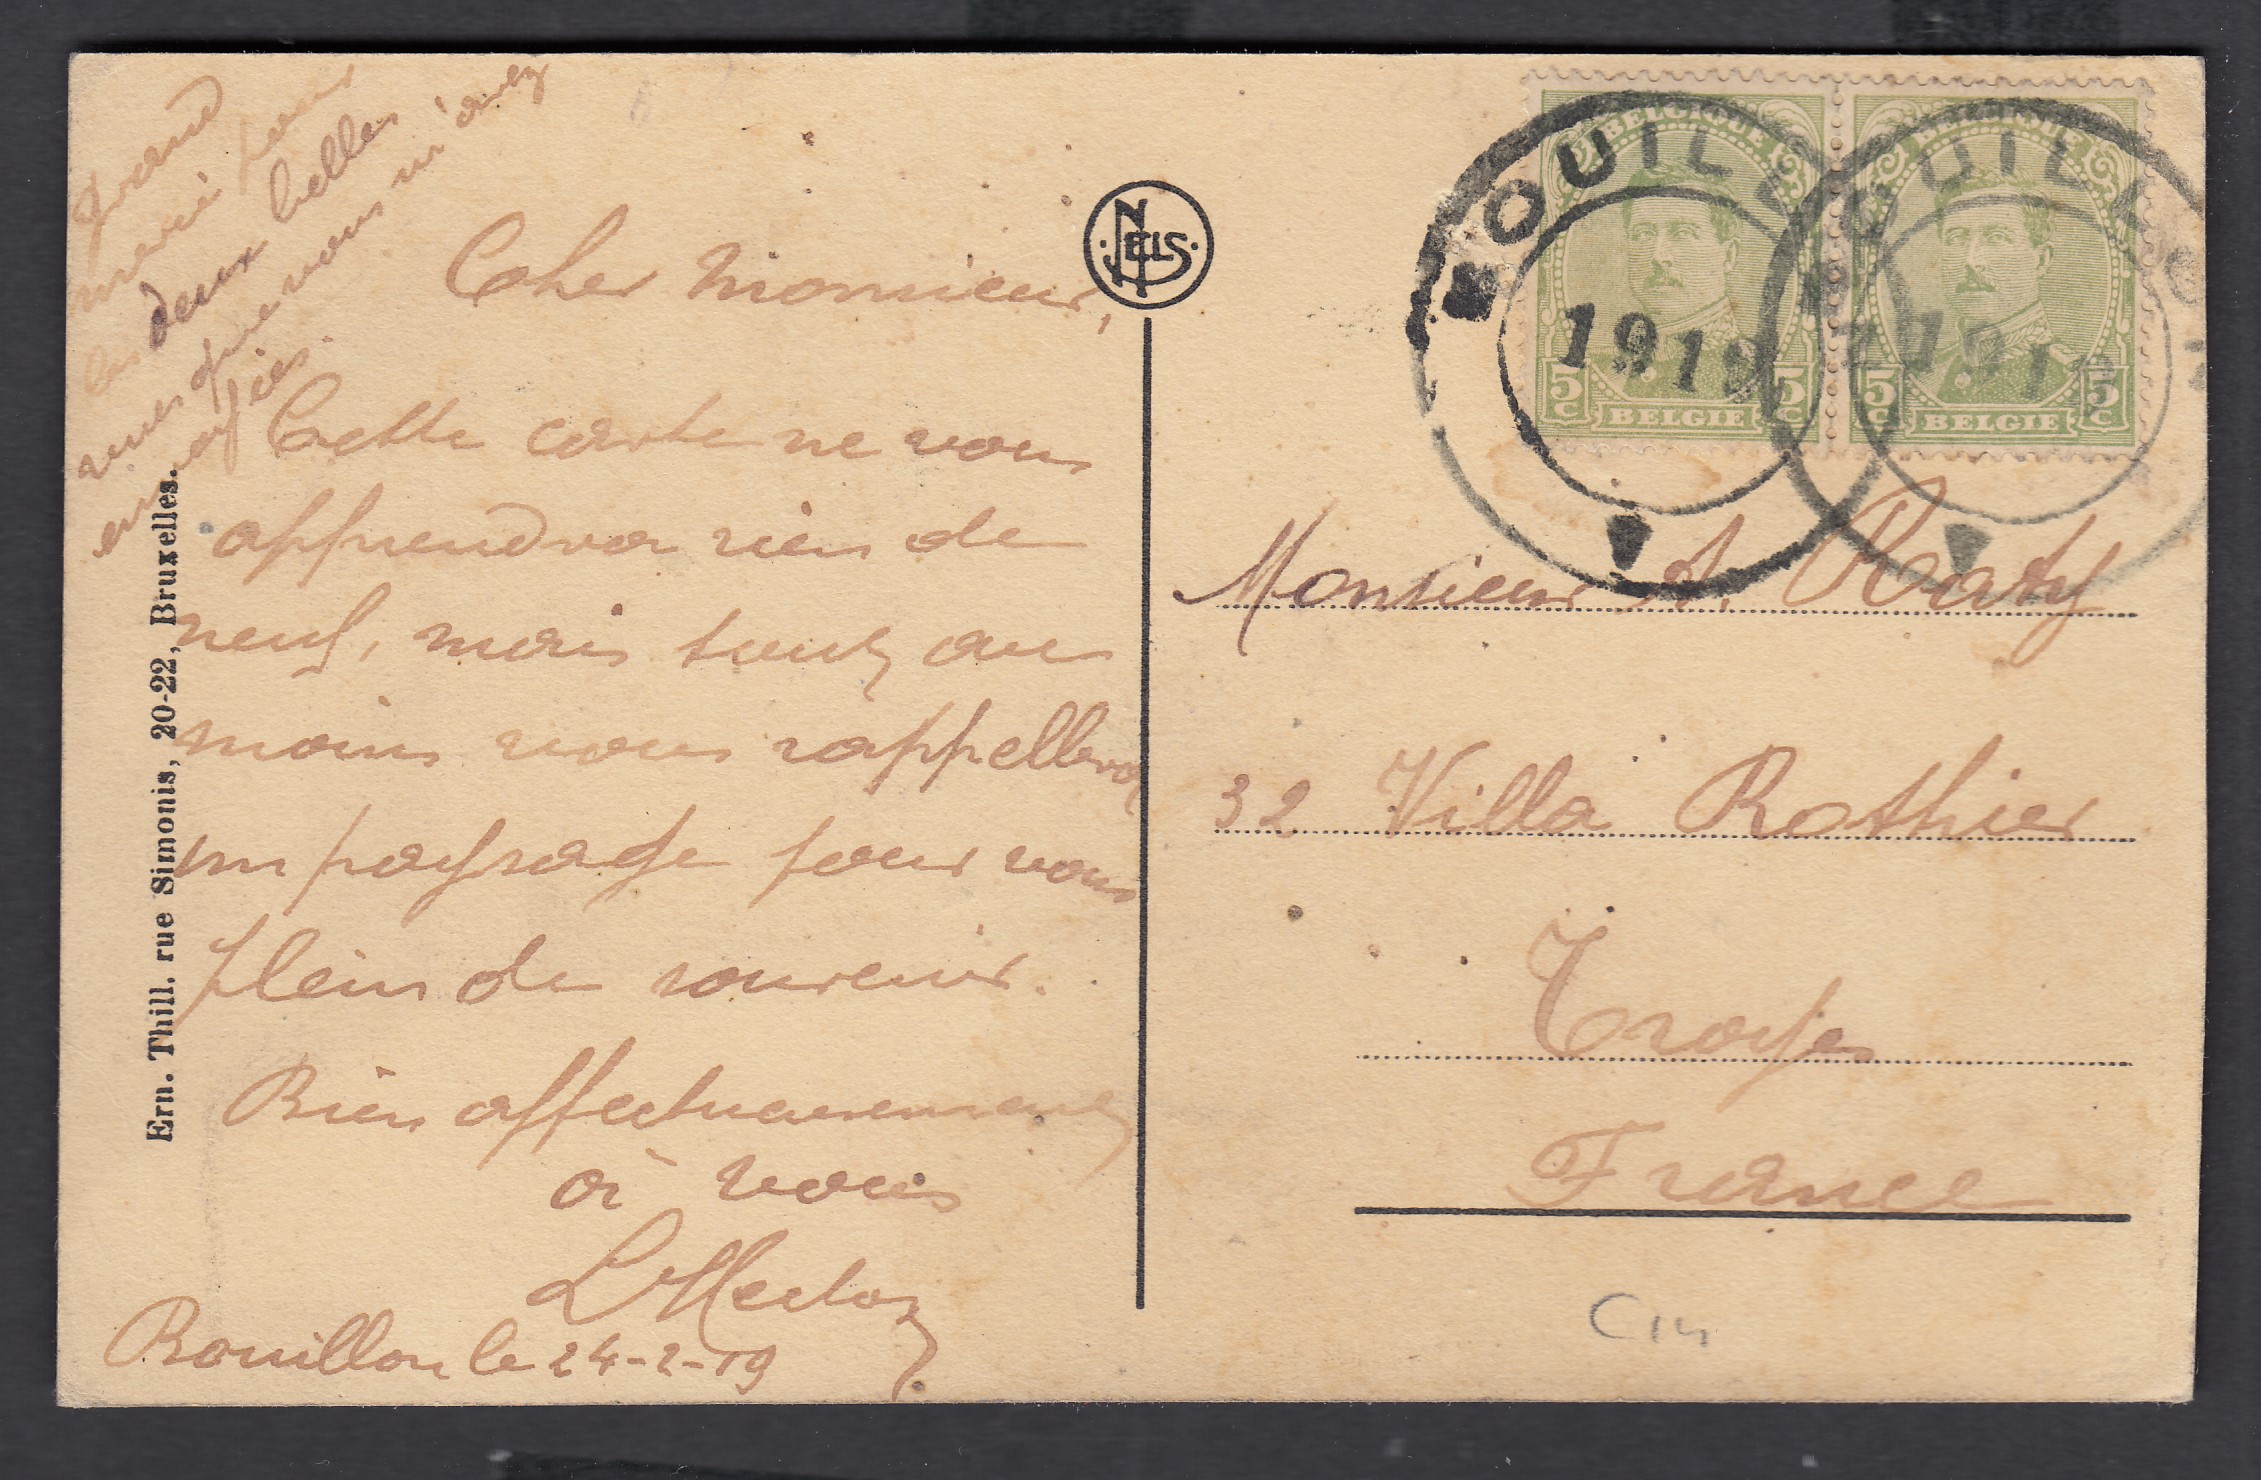 Grand
merci pour
les deux belles
vues que vous m'avez
envoyées.
Cher Monsieur,
Cette carte ne vous
apprendra rien de
neuf, mais tout au
moins vous rappellera
un paysage pour vous
plein de souvenir.
Bien affectueusement
à vous
Bouillon le 24-2-19
Ern. Thill. rue Simonis, 20-22, Bruxelles.
NELS
BELGIQUE
5c BELGIE 5c
BELGIQUE
5c BELGIE 5c
BOUILLO
1919
BOUILLO
1919
Monsieur A. Raty
32 Villa Rothier
Troyes
France
C14